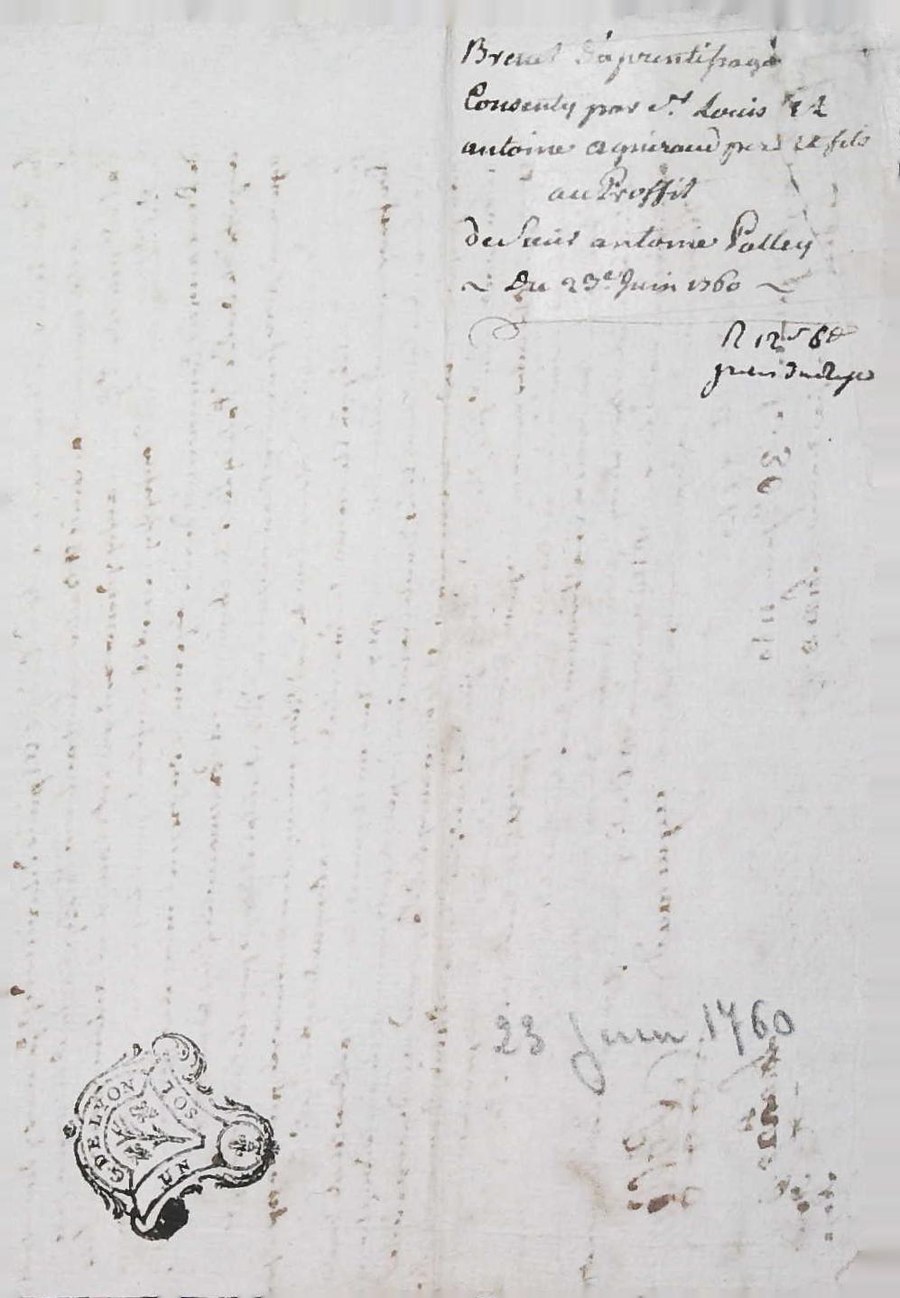 Brevet d'aprentissage
Consenty par Sr. Louis et
antoine agniraud pere et fils
au Proffit
de Sieur antoine Palley
~ Du 23e Juin 1760 ~
R 12s 6d
23 Juin 1760
G DE LYON
UN
SOL